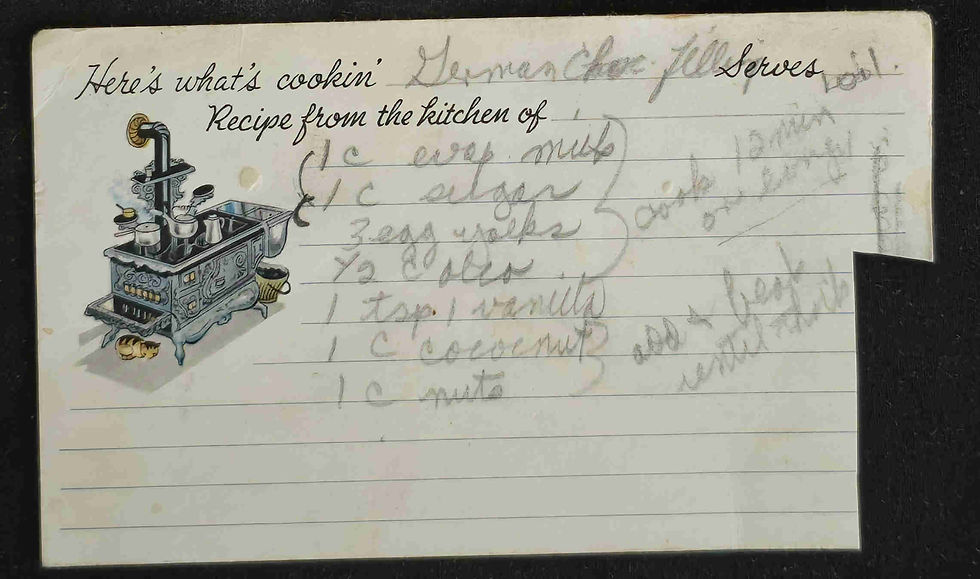 Here's what's cookin' German Choc Filling Serves
Recipe from the kitchen of
1 c evap. milk
1 c sugar
3 egg yolks
1/2 c oleo
1 tsp vanilla
1 c cocoanut
1 c nuts
cook 12 min
add & beat
until thick